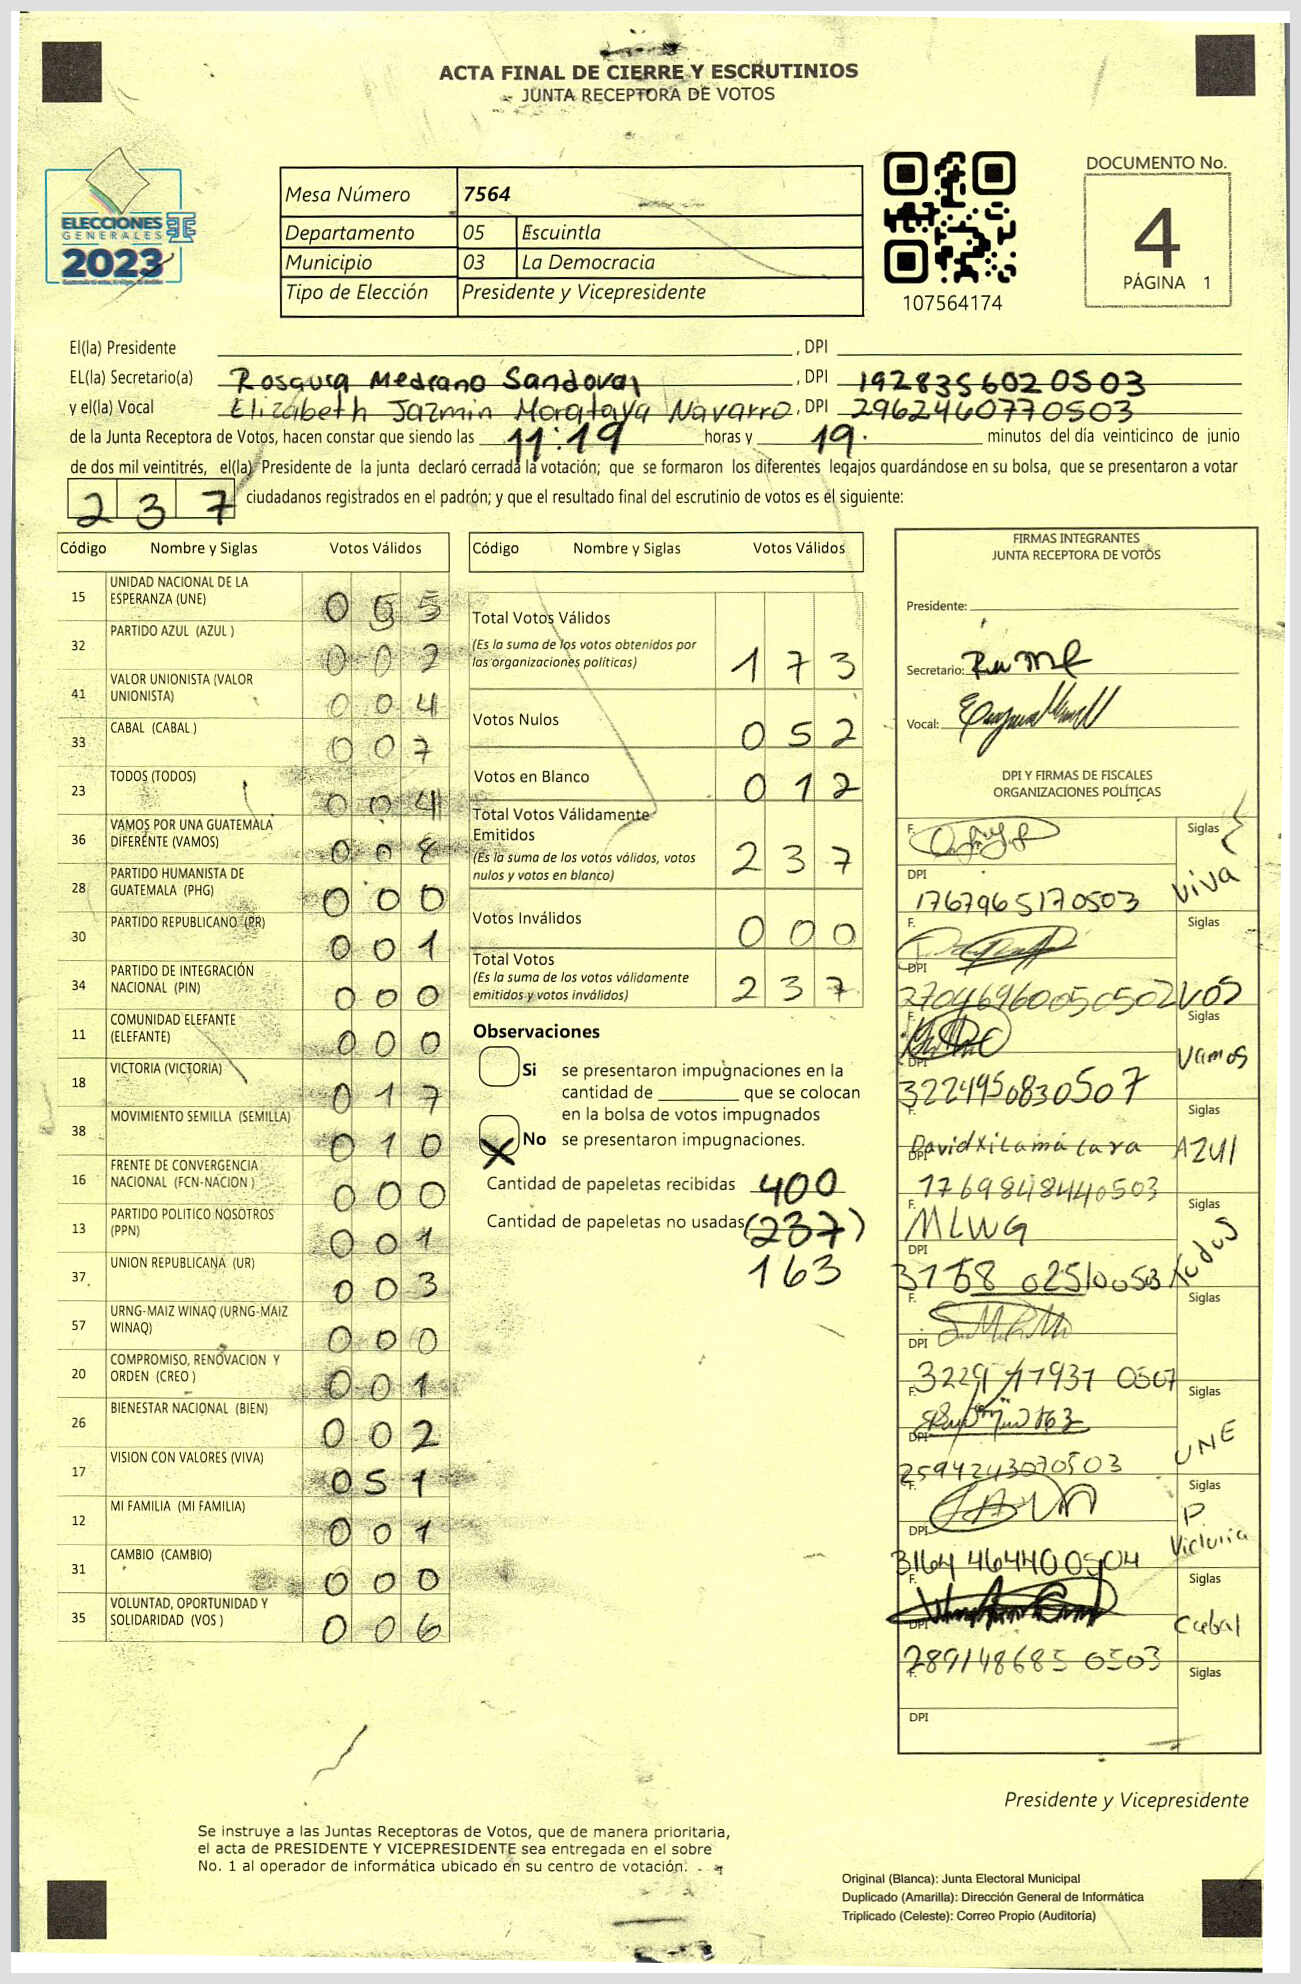 ACTA FINAL DE CIERRE Y ESCRUTINIOS
JUNTA RECEPTORA DE VOTOS
ELECCIONES
GENERALES
2023
Mesa Número 7564
Departamento 05 Escuintla
Municipio 03 La Democracia
Tipo de Elección Presidente y Vicepresidente
107564174
DOCUMENTO No.
4
PÁGINA 1
El(la) Presidente , DPI
EL(la) Secretario(a) Rosaura Medrano Sandoval , DPI 1928356020503
y el(la) Vocal Elizabeth Jazmin Morataya Navarro , DPI 2962460770503
de la Junta Receptora de Votos, hacen constar que siendo las 11:19 horas y 19 minutos del día veinticinco de junio
de dos mil veintitrés, el(la) Presidente de la junta declaró cerrada la votación; que se formaron los diferentes legajos guardándose en su bolsa, que se presentaron a votar
237 ciudadanos registrados en el padrón; y que el resultado final del escrutinio de votos es el siguiente:
Código Nombre y Siglas Votos Válidos
15 UNIDAD NACIONAL DE LA ESPERANZA (UNE) 055
32 PARTIDO AZUL (AZUL ) 002
41 VALOR UNIONISTA (VALOR UNIONISTA) 004
33 CABAL (CABAL ) 007
23 TODOS (TODOS) 004
36 VAMOS POR UNA GUATEMALA DIFERENTE (VAMOS) 008
28 PARTIDO HUMANISTA DE GUATEMALA (PHG) 000
30 PARTIDO REPUBLICANO (PR) 001
34 PARTIDO DE INTEGRACIÓN NACIONAL (PIN) 000
11 COMUNIDAD ELEFANTE (ELEFANTE) 000
18 VICTORIA (VICTORIA) 017
38 MOVIMIENTO SEMILLA (SEMILLA) 010
16 FRENTE DE CONVERGENCIA NACIONAL (FCN-NACION ) 000
13 PARTIDO POLITICO NOSOTROS (PPN) 001
37 UNION REPUBLICANA (UR) 003
57 URNG-MAIZ WINAQ (URNG-MAIZ WINAQ) 000
20 COMPROMISO, RENOVACION Y ORDEN (CREO ) 001
26 BIENESTAR NACIONAL (BIEN) 002
17 VISION CON VALORES (VIVA) 051
12 MI FAMILIA (MI FAMILIA) 001
31 CAMBIO (CAMBIO) 000
35 VOLUNTAD, OPORTUNIDAD Y SOLIDARIDAD (VOS ) 006
Código Nombre y Siglas Votos Válidos
Total Votos Válidos 173
(Es la suma de los votos obtenidos por
las organizaciones políticas)
Votos Nulos 052
Votos en Blanco 012
Total Votos Válidamente
Emitidos 237
(Es la suma de los votos válidos, votos
nulos y votos en blanco)
Votos Inválidos 000
Total Votos 237
(Es la suma de los votos válidamente
emitidos y votos inválidos)
Observaciones
Si se presentaron impugnaciones en la
cantidad de ________ que se colocan
en la bolsa de votos impugnados
X No se presentaron impugnaciones.
Cantidad de papeletas recibidas 400
Cantidad de papeletas no usadas (237)
163
FIRMAS INTEGRANTES
JUNTA RECEPTORA DE VOTOS
Presidente:
Secretario:
Vocal:
DPI Y FIRMAS DE FISCALES
ORGANIZACIONES POLÍTICAS
F. Siglas
DPI 1767965170503 Viva
F. Siglas
DPI 27046960050502 VOS
F. Siglas
DPI 3224950830507 Vamos
F. David Xilamá Cara Siglas
DPI 1769848440503 AZUl
F. MLWG Siglas
DPI 3158 02510053 todos
F. Siglas
DPI 3229 17937 0507
F. Siglas
DPI 2594243070503 UNE
F. Siglas
DPI 3164 464400504 P. Victoria
F. Siglas
DPI 289148685 0503 Cabal
F. Siglas
DPI
Presidente y Vicepresidente
Se instruye a las Juntas Receptoras de Votos, que de manera prioritaria,
el acta de PRESIDENTE Y VICEPRESIDENTE sea entregada en el sobre
No. 1 al operador de informática ubicado en su centro de votación.
Original (Blanca): Junta Electoral Municipal
Duplicado (Amarilla): Dirección General de Informática
Triplicado (Celeste): Correo Propio (Auditoría)